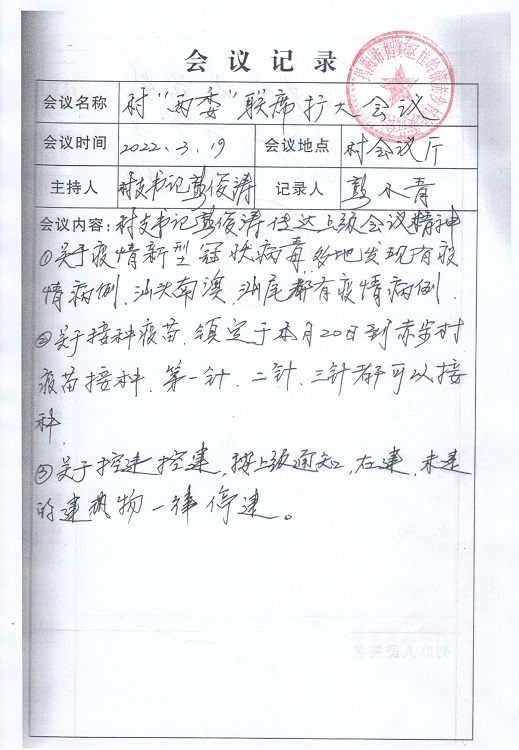 会议记录
会议名称 村“两委”联席扩大会议
会议时间 2022.3.19 会议地点 村会议厅
主持人 村支书记彭俊涛 记录人 彭木青
会议内容:村支书记彭俊涛传达上级会议精神
①关于疫情新型冠状病毒,多地发现有疫
情病例.汕头南澳.汕尾都有疫情病例.
②关于接种疫苗.镇定于本月20日到赤步村
疫苗接种.第一针.二针.三针都可以接
种.
③关于控违控建,按上级通知,在建.未建
的建筑物一律停建。